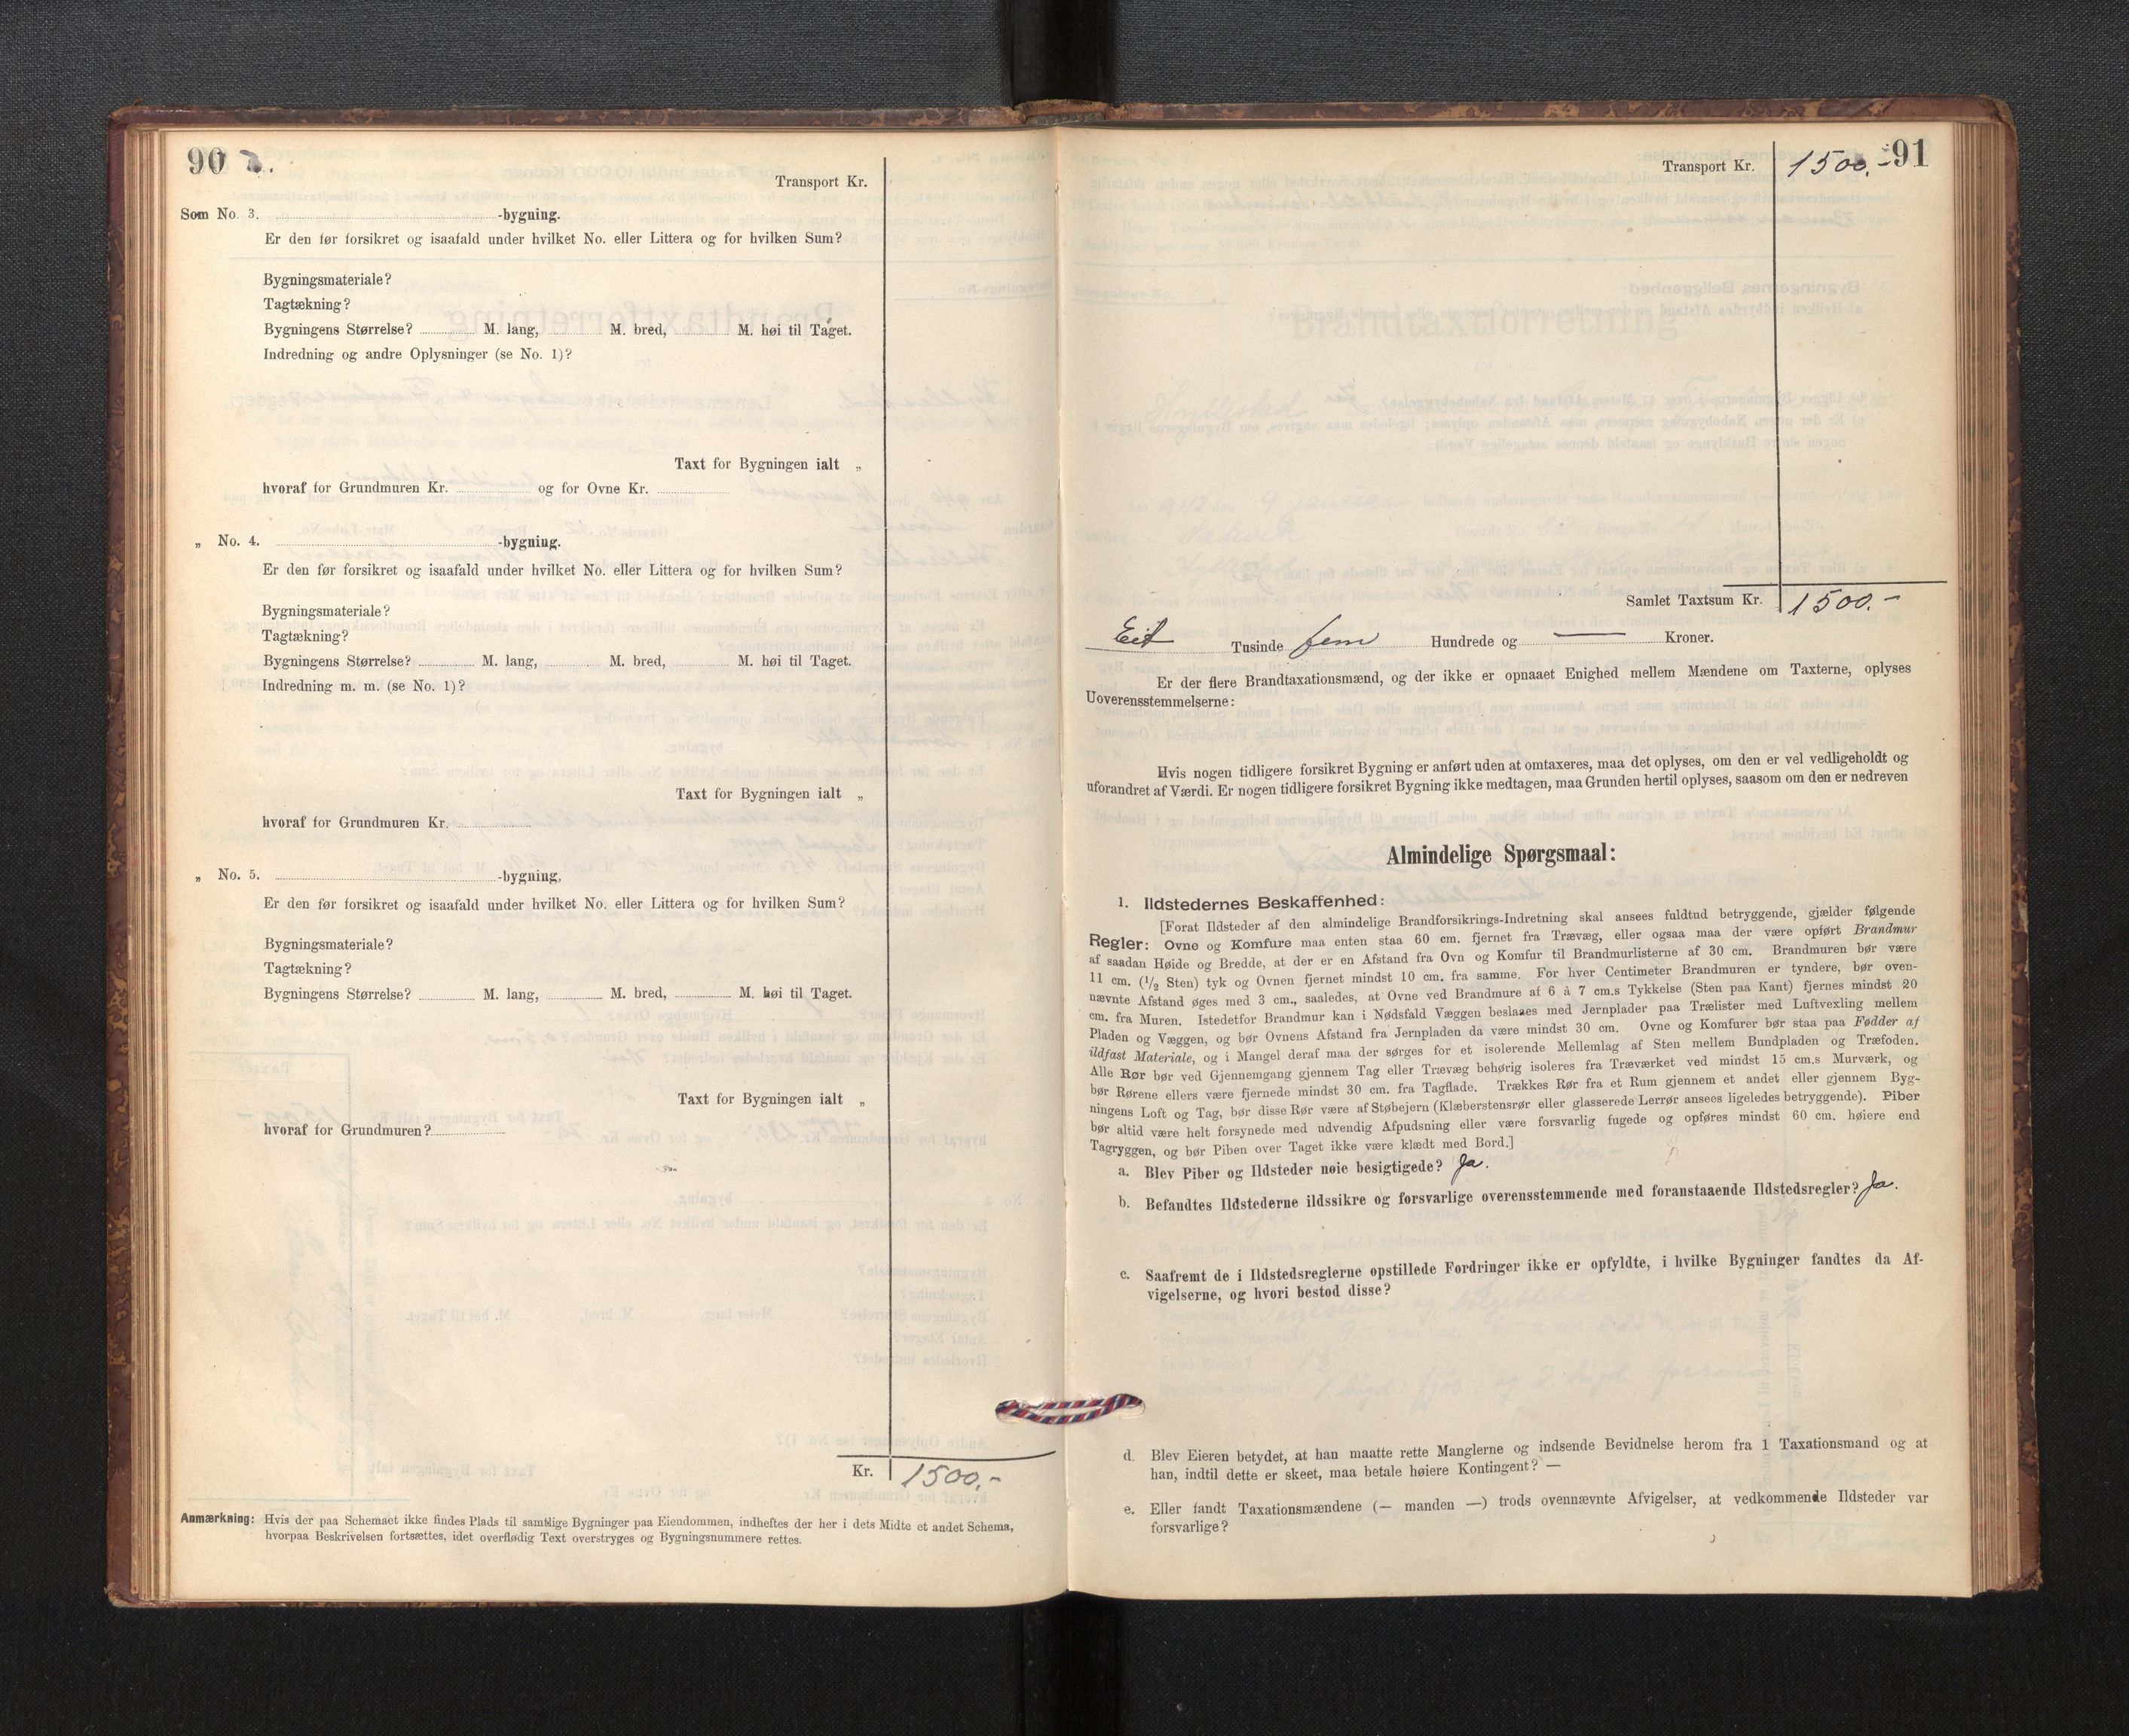 90
Transport Kr.
Som No. 3. -bygning.
Er den før forsikret og isaafald under hvilket No. eller Littera og for hvilken Sum?
Bygningsmateriale?
Tagtækning?
Bygningens Størrelse? M. lang, M. bred, M. høi til Taget.
Indredning og andre Oplysninger (se No. 1)?
Taxt for Bygningen ialt „
hvoraf for Grundmuren Kr. og for Ovne Kr.
„ No. 4. -bygning.
Er den før forsikret og isaafald under hvilket No. eller Littera og for hvilken Sum?
Bygningsmateriale?
Tagtækning?
Bygningens Størrelse? M. lang, M. bred, M. høi til Taget.
Indredning m. m. (se No. 1)?
Taxt for Bygningen ialt „
hvoraf for Grundmuren Kr.
„ No. 5. -bygning,
Er den før forsikret og isaafald under hvilket No. eller Littera og for hvilken Sum?
Bygningsmateriale?
Tagtækning?
Bygningens Størrelse? M. lang, M. bred, M. høi til Taget.
Taxt for Bygningen ialt „
hvoraf for Grundmuren?
Kr. 1500,-
Anmærkning: Hvis der paa Schemaet ikke findes Plads til samtlige Bygninger paa Eiendommen, indheftes der her i dets Midte et andet Schema,
hvorpaa Beskrivelsen fortsættes, idet overflødig Text overstryges og Bygningsnummere rettes.
91
Transport Kr. 1500,-
Samlet Taxtsum Kr. 1500.-
Eit Tusinde fem Hundrede og — Kroner.
Er der flere Brandtaxationsmænd, og der ikke er opnaaet Enighed mellem Mændene om Taxterne, oplyses
Uoverensstemmelserne:
Hvis nogen tidligere forsikret Bygning er anført uden at omtaxeres, maa det oplyses, om den er vel vedligeholdt og
uforandret af Værdi. Er nogen tidligere forsikret Bygning ikke medtagen, maa Grunden hertil oplyses, saasom om den er nedreven
Almindelige Spørgsmaal:
1. Ildstedernes Beskaffenhed:
[Forat Ildsteder af den almindelige Brandforsikrings-Indretning skal ansees fuldtud betryggende, gjælder følgende
Regler: Ovne og Komfure maa enten staa 60 cm. fjernet fra Trævæg, eller ogsaa maa der være opført Brandmur
af saadan Høide og Bredde, at der er en Afstand fra Ovn og Komfur til Brandmurlisterne af 30 cm. Brandmuren bør være
11 cm. (1/2 Sten) tyk og Ovnen fjernet mindst 10 cm. fra samme. For hver Centimeter Brandmuren er tyndere, bør oven-
nævnte Afstand øges med 3 cm., saaledes, at Ovne ved Brandmure af 6 à 7 cm.s Tykkelse (Sten paa Kant) fjernes mindst 20
cm. fra Muren. Istedetfor Brandmur kan i Nødsfald Væggen beslaaes med Jernplader paa Trælister med Luftvexling mellem
Pladen og Væggen, og bør Ovnens Afstand fra Jernpladen da være mindst 30 cm. Ovne og Komfurer bør staa paa Fødder af
ildfast Materiale, og i Mangel deraf maa der sørges for et isolerende Mellemlag af Sten mellem Bundpladen og Træfoden.
Alle Rør bør ved Gjennemgang gjennem Tag eller Trævæg behørig isoleres fra Træværket ved mindst 15 cm.s Murværk, og
bør Rørene ellers være fjernede mindst 30 cm. fra Tagflade. Trækkes Rør fra et Rum gjennem et andet eller gjennem Byg-
ningens Loft og Tag, bør disse Rør være af Støbejern (Klæberstensrør eller glasserede Lerrør ansees ligeledes betryggende). Piber
bør altid være helt forsynede med udvendig Afpudsning eller være forsvarlig fugede og opføres mindst 60 cm. høiere end
Tagryggen, og bør Piben over Taget ikke være klædt med Bord.]
a. Blev Piber og Ildsteder nøie besigtigede? Ja.
b. Befandtes Ildstederne ildssikre og forsvarlige overensstemmende med foranstaaende Ildstedsregler? Ja.
c. Saafremt de i Ildstedsreglerne opstillede Fordringer ikke er opfyldte, i hvilke Bygninger fandtes da Af-
vigelserne, og hvori bestod disse?
d. Blev Eieren betydet, at han maatte rette Manglerne og indsende Bevidnelse herom fra 1 Taxationsmand og at
han, indtil dette er skeet, maa betale høiere Kontingent? —
e. Eller fandt Taxationsmændene (— manden —) trods ovennævnte Afvigelser, at vedkommende Ildsteder var
forsvarlige?